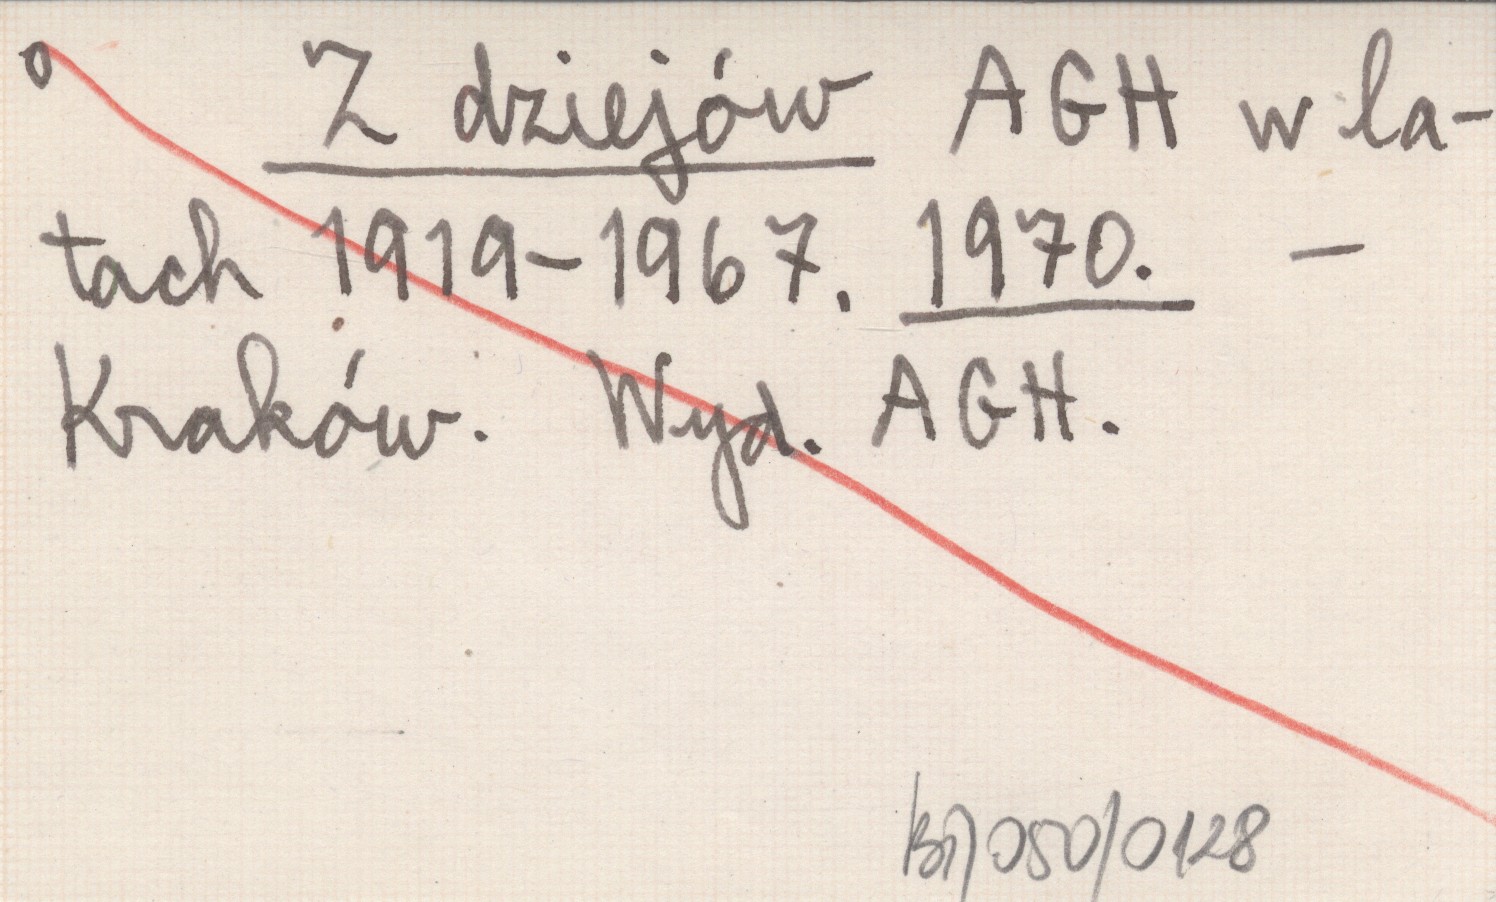 o Z dziejów AGH w la-
tach 1919-1967. 1970. -
Kraków. Wyd. AGH.
/050/0128